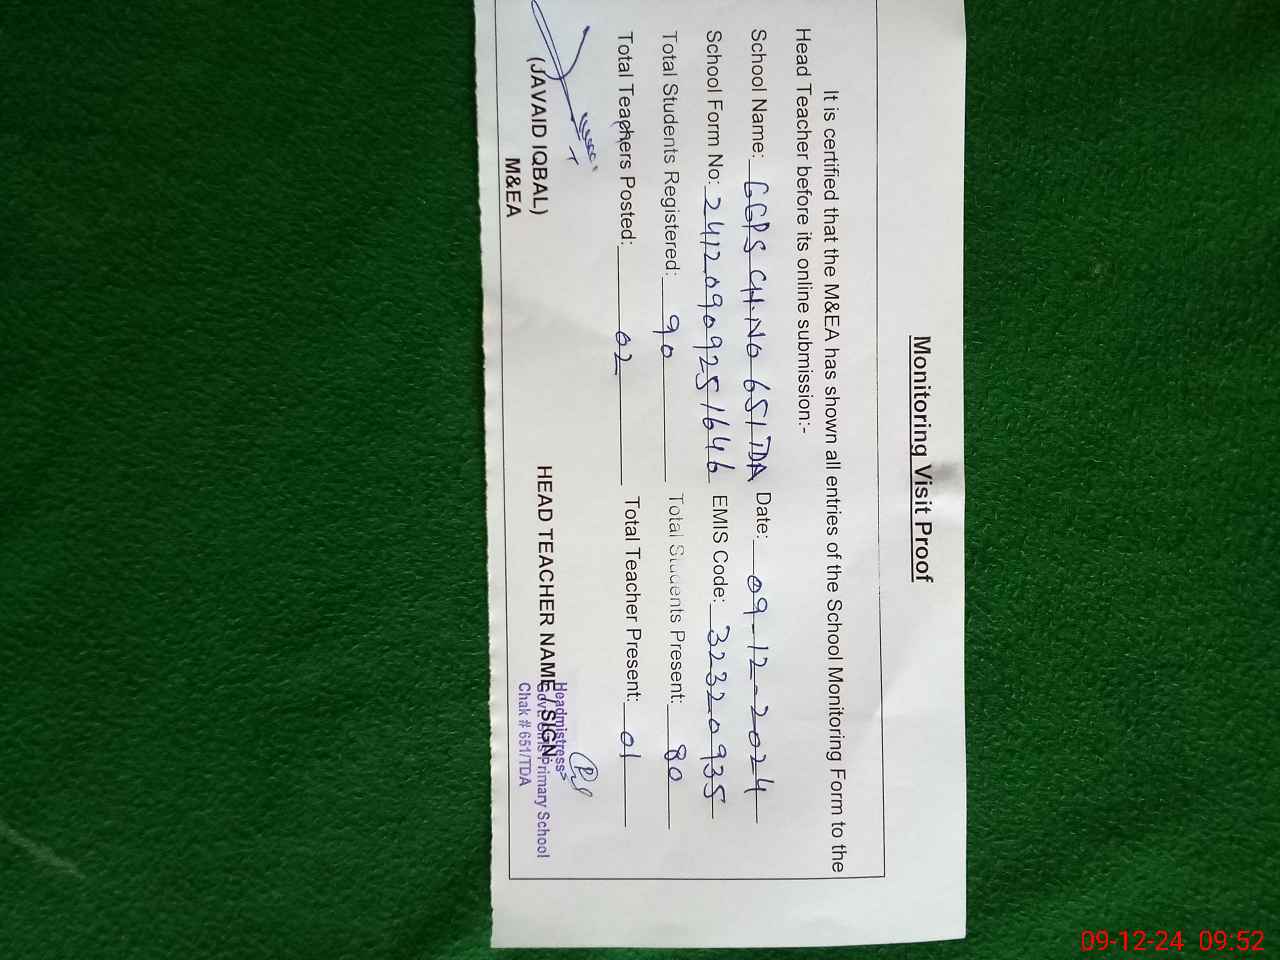 Monitoring Visit Proof
It is certified that the M&EA has shown all entries of the School Monitoring Form to the
Head Teacher before its online submission:-
School Name: GGPS CH.NO 651 TDA Date: 09-12-2024
School Form No: 24120909251646 EMIS Code: 32320935
Total Students Registered: 90 Total Students Present: 80
Total Teachers Posted: 02 Total Teacher Present: 01
(JAVAID IQBAL)
M&EA
HEAD TEACHER NAME / SIGN
Headmistress
Govt. Girls Primary School
Chak # 651/TDA
09-12-24 09:52